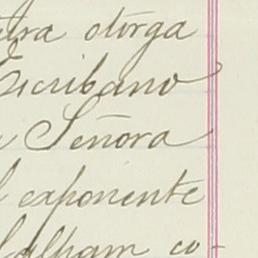 tra otorga
Escribano
a Señora
l exponente
Calpam co-